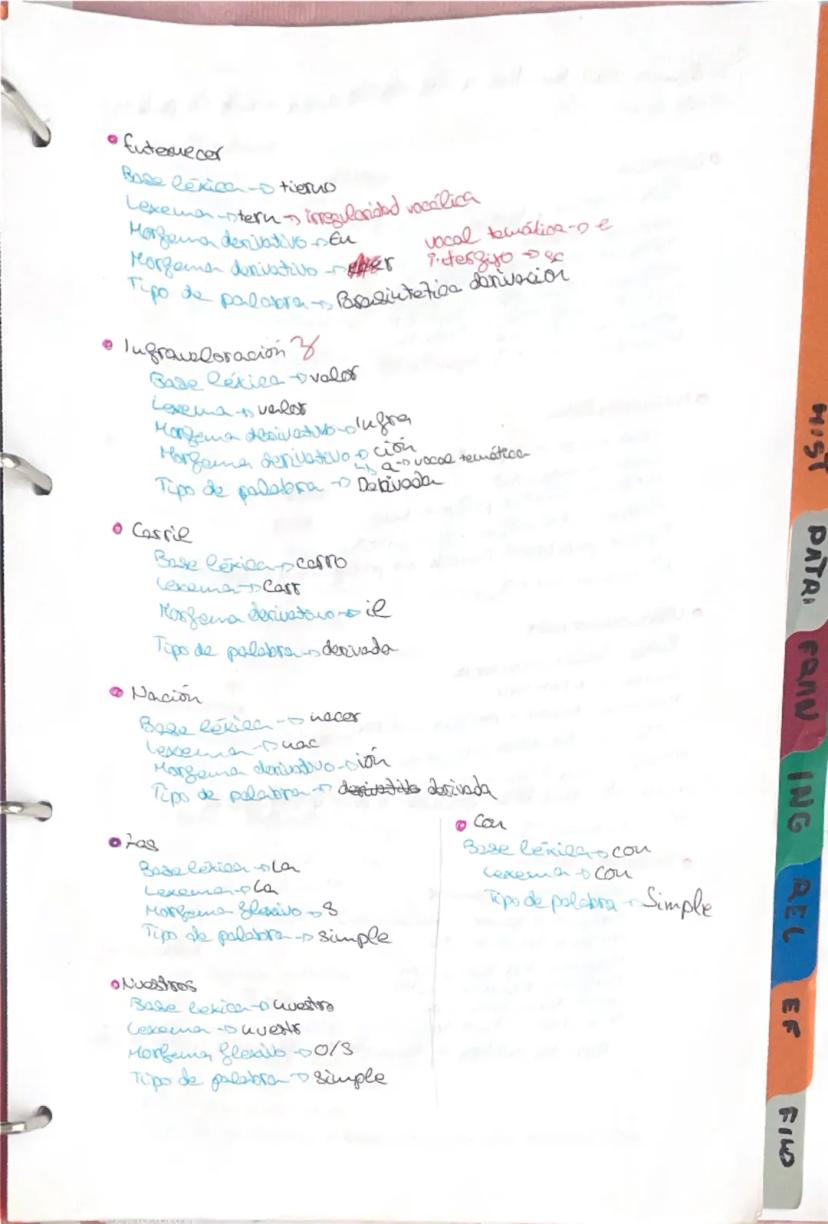 • Enternecer
Base léxica → tierno
Lexema → tern → irregularidad vocálica
Morfema derivativo → En
vocal temática → e
Morfema derivativo → r
interfijo → ec
Tipo de palabra → Parasintetica derivacion
• Infravaloración
Base léxica → valor
Lexema → valor
Morfema derivativo → Infra
Morfema derivativo → ción
↳ a → vocal temática
Tipo de palabra → Derivada
• Carril
Base léxica → carro
Lexema → Carr
Morfema derivativo → il
Tipo de palabra → derivada
• Nación
Base léxica → nacer
Lexema → nac
Morfema derivativo → ión
Tipo de palabra → derivada
• Las
Base léxica → La
Lexema → La
Morfema flexivo → S
Tipo de palabra → simple
• Con
Base léxica → con
Lexema → con
Tipo de palabra → Simple
• Nuestros
Base lexica → nuestro
Lexema → nuestr
Morfema flexivo → O/S
Tipo de palabra → simple
HIST
PATRI
FRAN
ING
REL
EF